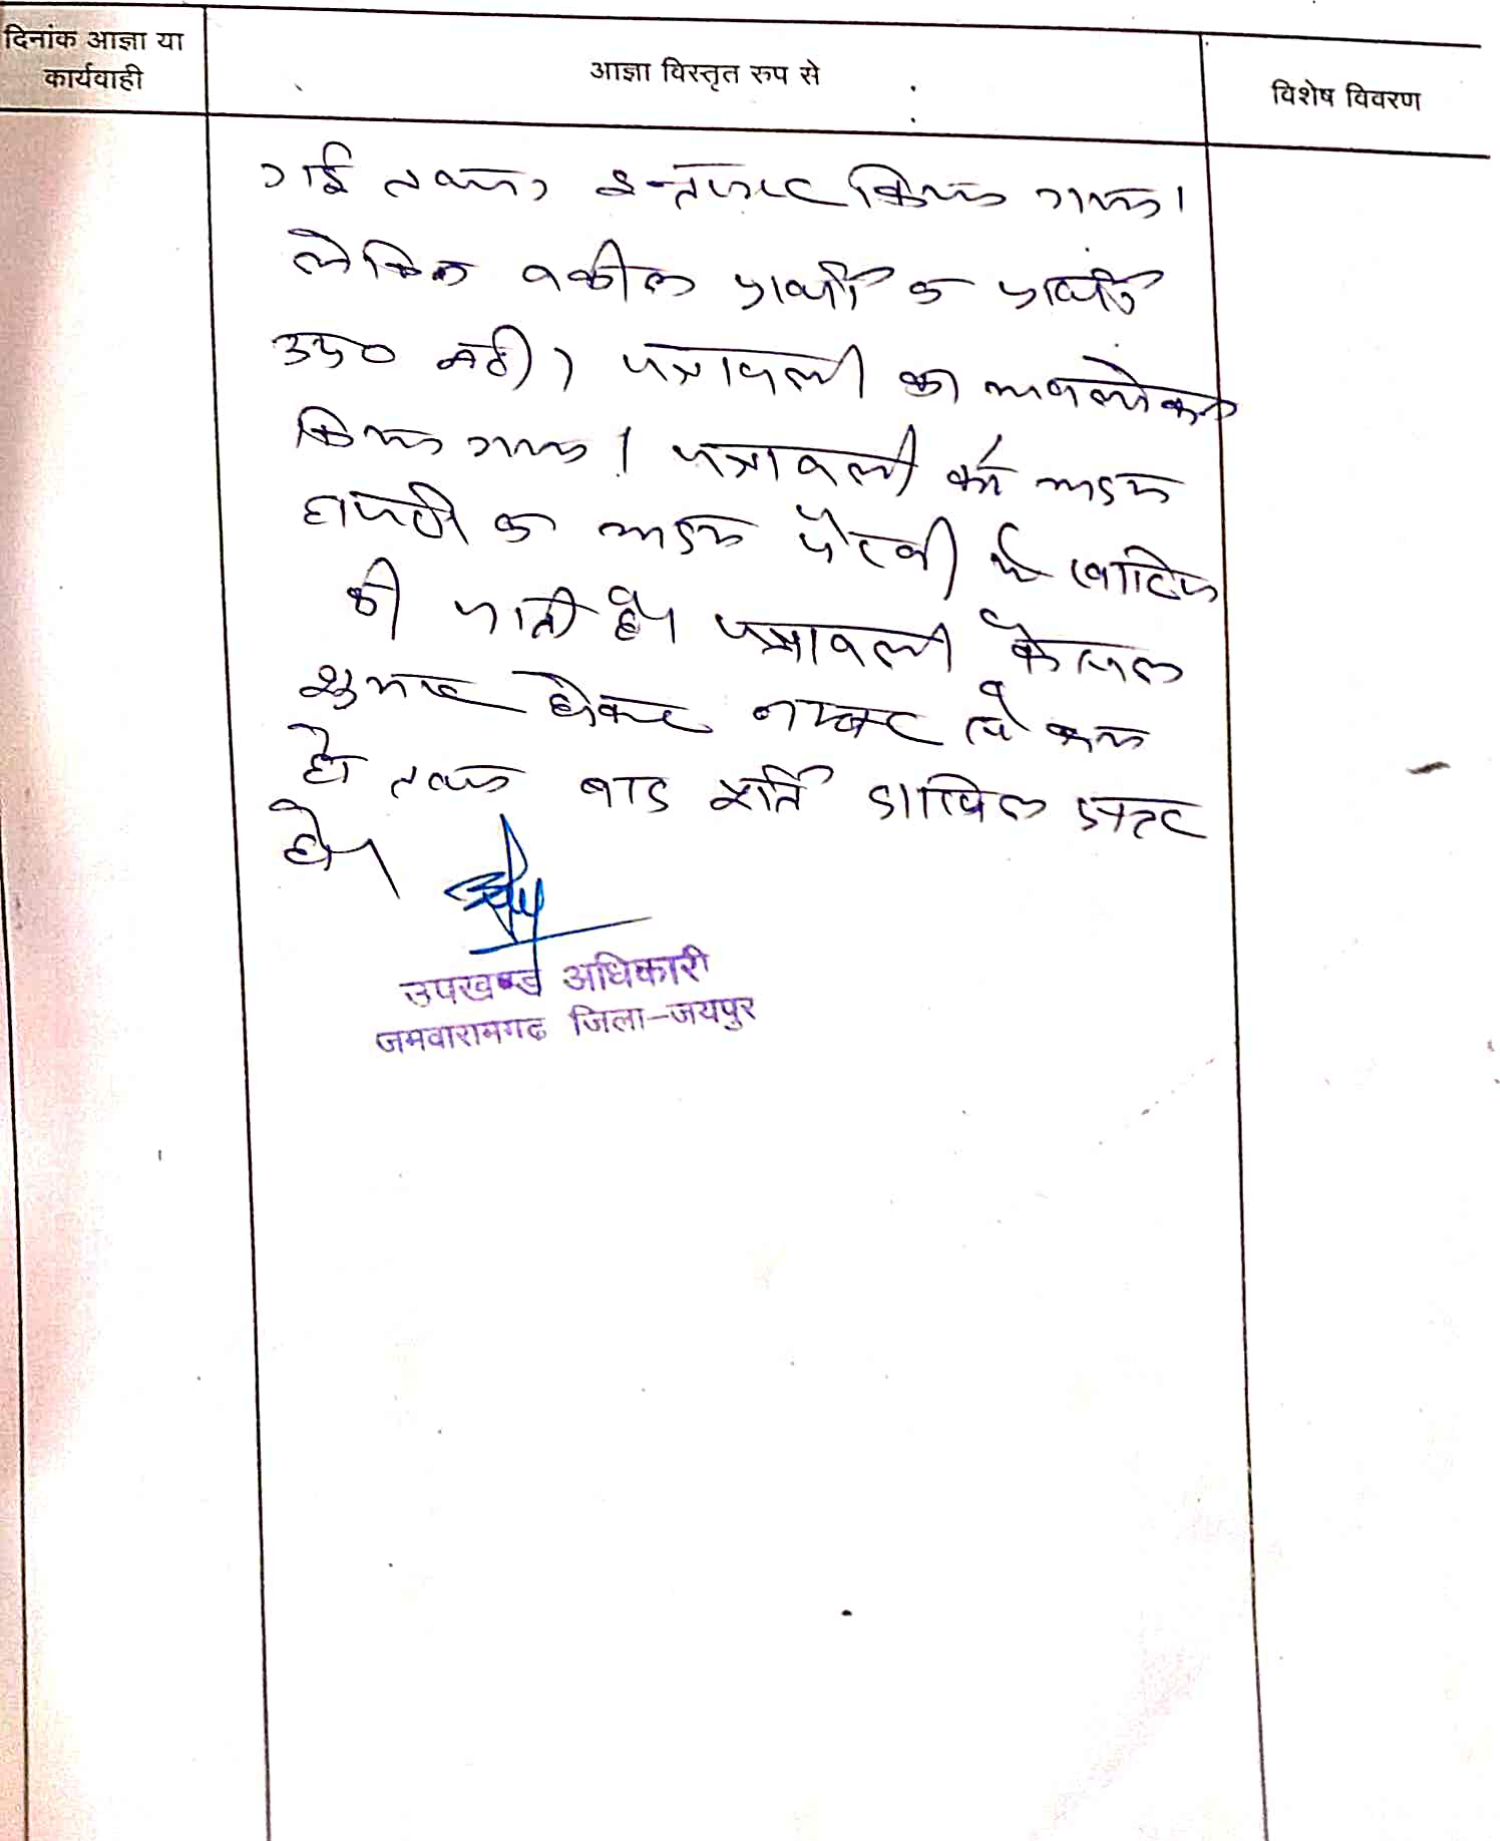 दिनांक आज्ञा या
कार्यवाही
आज्ञा विस्तृत रुप से
विशेष विवरण
गई तथा इन्तजार किया गया।
लेकिन वकील प्रार्थी व प्रार्थी
उप० नही। पत्रावली का अवलोकन
किया गया। पत्रावली को अदम
हाजरी व अदम पैरवी में खारिज
की जाती है। पत्रावली फैसल
शुमार होकर नम्बर से कम
हो तथा बाद पूर्ति दाखिल दफ्तर
हो।
उपखण्ड अधिकारी
जमवारामगढ जिला-जयपुर